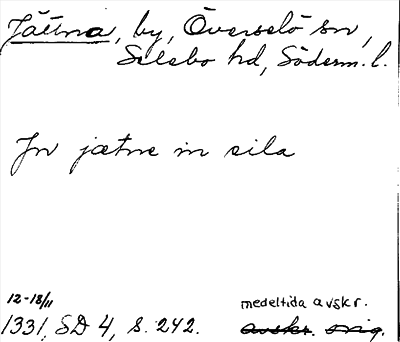 Jättna, by, Överselö sn,
Selebo hd, Söderm. l.
Jn jætne in sila
12-18/11
medeltida avskr.
1331, SD 4, s. 242.
avskr. orig.